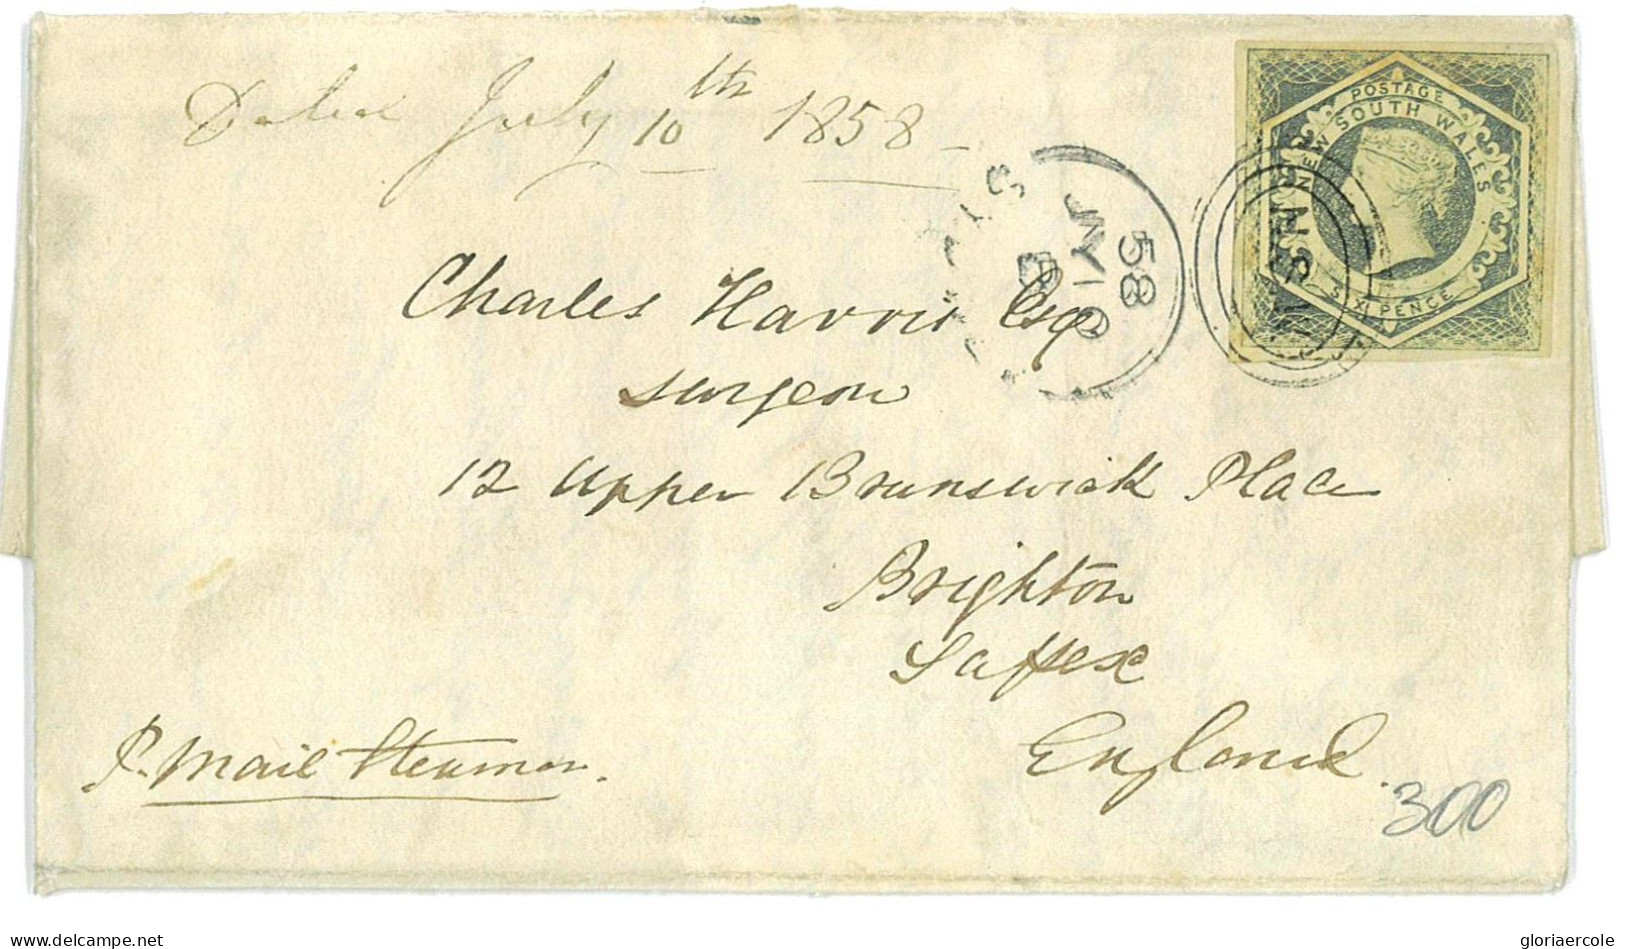 Dated July 10th 1858
POSTAGE
NEW SOUTH WALES
SIX PENCE
N.S.W
58
JY 10
Charles Harris Esq
Surgeon
12 Upper Brunswick Place
Brighton
Sussex
England.
P. Mail Steamer.
300
gloriaercole
www.delcampe.net